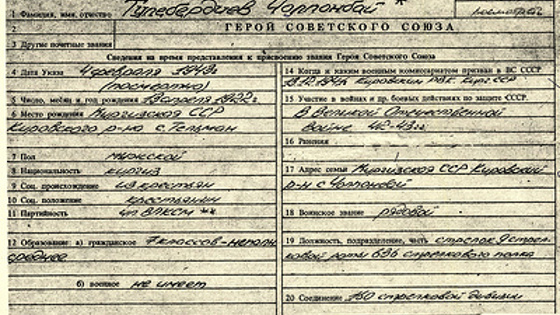 1 Фамилия, имя, отчество Тулебердиев Чолпонбай *
посмертно
2 ГЕРОЙ СОВЕТСКОГО СОЮЗА
3 Другие почетные звания
Сведения на время представления к присвоению звания Героя Советского Союза
4 Дата Указа 4 февраля 1943г
(посмертно)
5 Число, месяц и год рождения 13 апреля 1922г
6 Место рождения Киргизская ССР
Кировского р-на с. Тельман
7 Пол мужской
8 Национальность киргиз
9 Соц. происхождение из крестьян
10 Соц. положение крестьянин
11 Партийность чл. ВЛКСМ **
12 Образование: а) гражданское 7 классов - неполн
среднее
б) военное не имеет
14 Когда и каким военным комиссариатом призван в ВС СССР
Кировским РВК Кирг ССР
15 Участие в войнах и др. боевых действиях по защите СССР
В Великой Отечественной
войне 42-43гг
16 Ранения
17 Адрес семьи Киргизская ССР Кировский
р-н с Чолпонбай
18 Воинское звание рядовой
19 Должность, подразделение, часть стрелок 9 стрел
ковой роты 636 стрелкового полка
20 Соединение 160 стрелковой дивизии